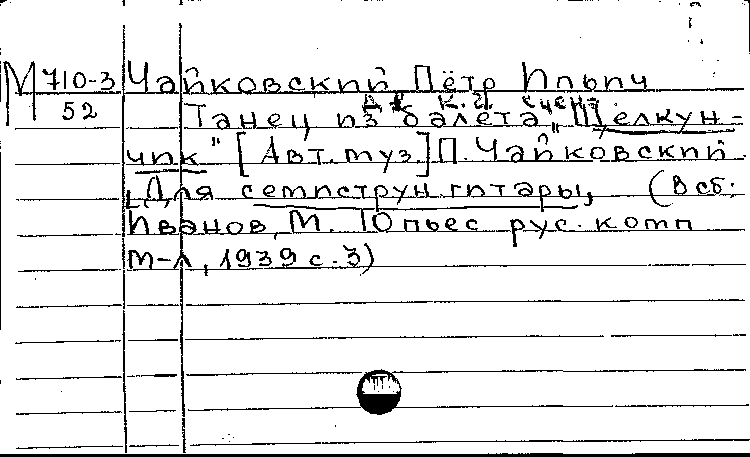 М 710-3 Чайковский, Пётр Ильич
52 Танец из балета „Щелкун-
чик" [Авт. муз.] П. Чайковский.
Для семиструн. гитары, (В сб:
Иванов, М. 10 пьес рус. комп
М-Л, 1939 с. 3)